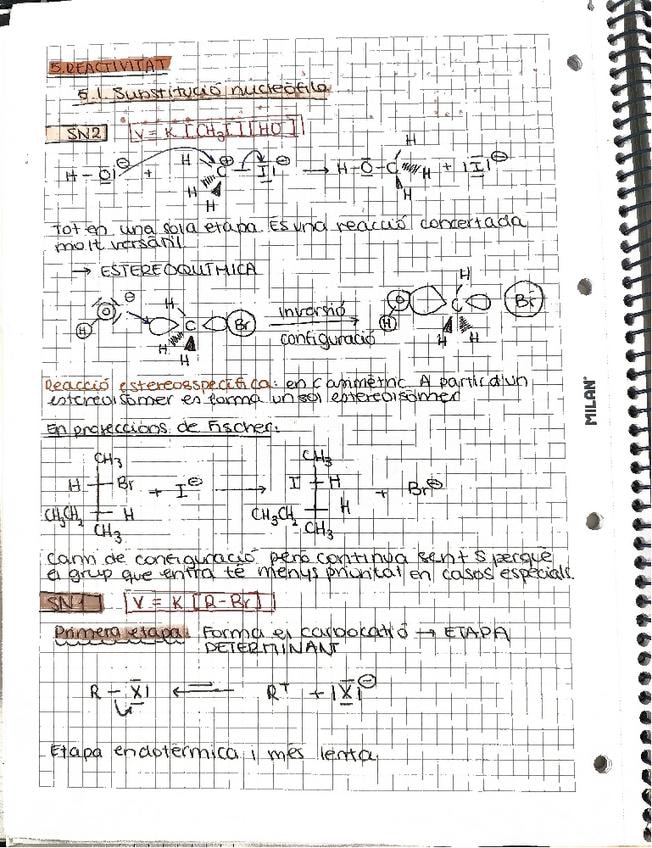 5. REACTIVITAT
5.1. Substitució nucleòfila
SN2 V = K [CH3I] [HO-]
H – O|⊖ + H H H C – I|⊖ → H – O – C H H H + |I|⊖
Tot en una sola etapa. És una reacció concertada
molt versàtil
→ ESTEREOQUÍMICA
H O ⊖ H C Br H H inversió configuració H O C H H H Br
Reacció estereosspecífica: en C asimètric. A partir d'un
estereoisòmer es forma un sol estereoisòmer
En projeccions de Fischer.
CH3 CH3
H Br + I⊖ → I H + Br⊖
CH3CH2 H CH3CH2 H
CH3 CH3
Canvi de configuració però continua sent S perquè
el grup que entra té menys prioritat en casos especials.
SN1 V = K [R-Br]
Primera etapa: Forma el carbocatió → ETAPA
DETERMINANT
R – X| ⇌ R+ + |X|⊖
Etapa endotèrmica i més lenta.
MILAN